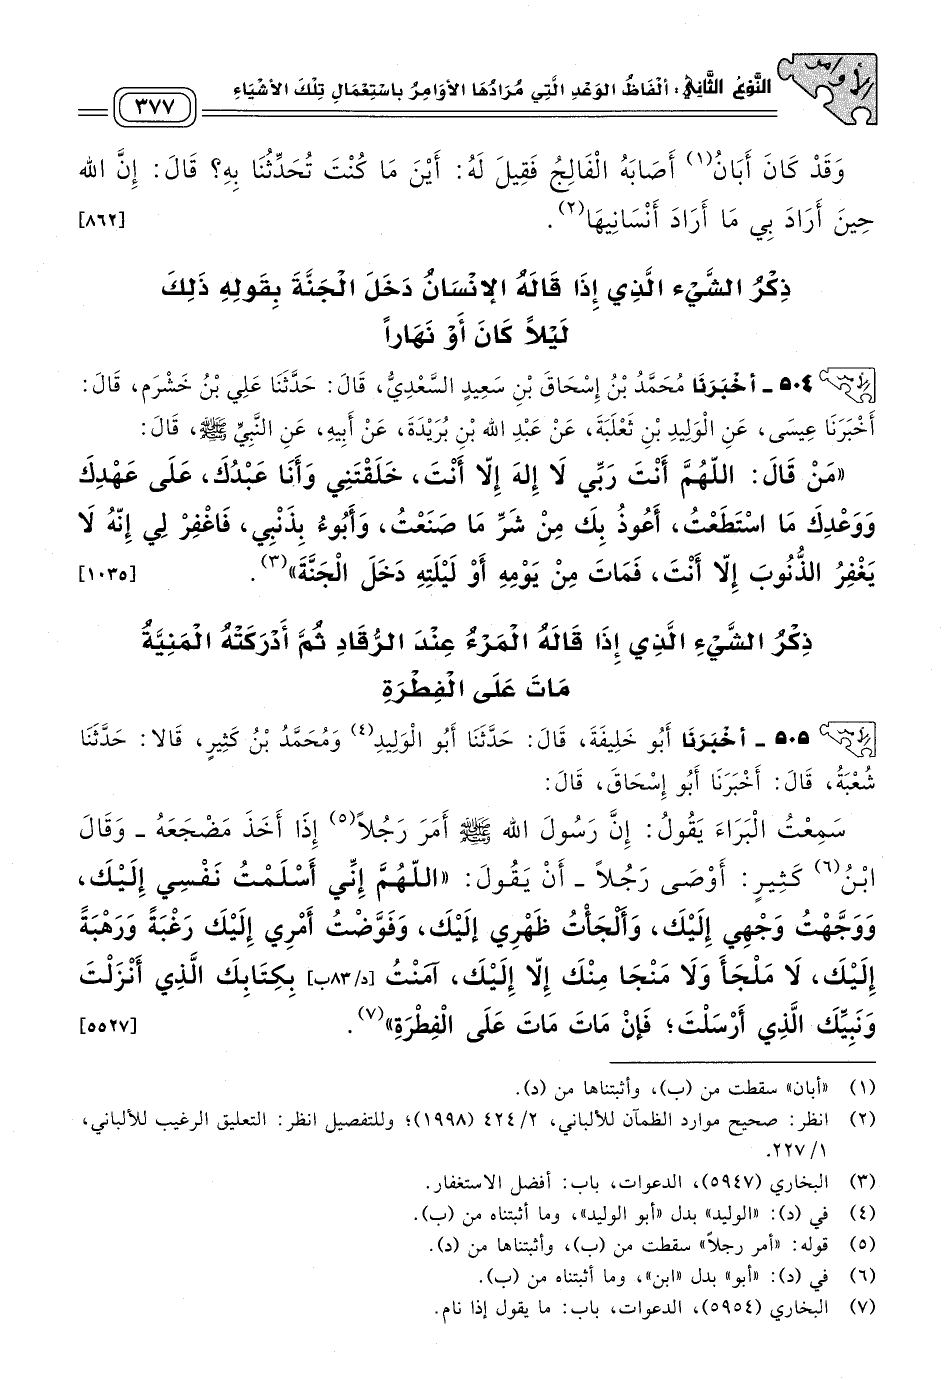 الأوامر
النَّوْعُ الثَّانِي: أَلْفَاظُ الوَعْدِ الَّتِي مُرَادُهَا الأَوَامِرُ بِاسْتِعْمَالِ تِلْكَ الأَشْيَاءِ
٣٧٧
وَقَدْ كَانَ أَبَانُ(١) أَصَابَهُ الْفَالِجُ فَقِيلَ لَهُ: أَيْنَ مَا كُنْتَ تُحَدِّثُنَا بِهِ؟ قَالَ: إِنَّ الله
حِينَ أَرَادَ بِي مَا أَرَادَ أَنْسَانِيهَا(٢). [٨٦٢]
ذِكْرُ الشَّيْءِ الَّذِي إِذَا قَالَهُ الإِنْسَانُ دَخَلَ الْجَنَّةَ بِقَوْلِهِ ذَلِكَ
لَيْلاً كَانَ أَوْ نَهَاراً
٥٠٤ ـ أَخْبَرَنَا مُحَمَّدُ بْنُ إِسْحَاقَ بْنِ سَعِيدٍ السَّعْدِيُّ، قَالَ: حَدَّثَنَا عَلِي بْنُ خَشْرَم، قَالَ:
أَخْبَرَنَا عِيسَى، عَنِ الْوَلِيدِ بْنِ ثَعْلَبَةَ، عَنْ عَبْدِ الله بْنِ بُرَيْدَةَ، عَنْ أَبِيهِ، عَنِ النَّبِيِّ ﷺ، قَالَ:
«مَنْ قَالَ: اللّهُمَّ أَنْتَ رَبِّي لَا إِلهَ إِلّا أَنْتَ، خَلَقْتَنِي وَأَنَا عَبْدُكَ، عَلَى عَهْدِكَ
وَوَعْدِكَ مَا اسْتَطَعْتُ، أَعُوذُ بِكَ مِنْ شَرِّ مَا صَنَعْتُ، وَأَبُوءُ بِذَنْبِي، فَاغْفِرْ لِي إِنّهُ لَا
يَغْفِرُ الذُّنُوبَ إِلّا أَنْتَ، فَمَاتَ مِنْ يَوْمِهِ أَوْ لَيْلَتِهِ دَخَلَ الْجَنَّةَ»(٣). [١٠٣٥]
ذِكْرُ الشَّيْءِ الَّذِي إِذَا قَالَهُ الْمَرْءُ عِنْدَ الرُّقَادِ ثُمَّ أَدْرَكَتْهُ الْمَنِيَّةُ
مَاتَ عَلَى الْفِطْرَةِ
٥٠٥ ـ أَخْبَرَنَا أَبُو خَلِيفَةَ، قَالَ: حَدَّثَنَا أَبُو الْوَلِيدِ(٤) وَمُحَمَّدُ بْنُ كَثِيرٍ، قَالا: حَدَّثَنَا
شُعْبَةُ، قَالَ: أَخْبَرَنَا أَبُو إِسْحَاقَ، قَالَ:
سَمِعْتُ الْبَرَاءَ يَقُولُ: إِنَّ رَسُولَ الله ﷺ أَمَرَ رَجُلاً(٥) إِذَا أَخَذَ مَضْجَعَهُ ـ وَقَالَ
ابْنُ(٦) كَثِيرٍ: أَوْصَى رَجُلاً ـ أَنْ يَقُولَ: «اللّهُمَّ إِنِّي أَسْلَمْتُ نَفْسِي إِلَيْكَ،
وَوَجَّهْتُ وَجْهِي إِلَيْكَ، وَأَلْجَأْتُ ظَهْرِي إلَيْكَ، وَفَوَّضْتُ أَمْرِي إِلَيْكَ رَغْبَةً وَرَهْبَةً
إِلَيْكَ، لَا مَلْجَأَ وَلَا مَنْجَا مِنْكَ إِلّا إِلَيْكَ، آمَنْتُ [د/٨٣ب] بِكِتَابِكَ الَّذِي أَنْزَلْتَ
وَنَبِيِّكَ الَّذِي أَرْسَلْتَ؛ فَإِنْ مَاتَ مَاتَ عَلَى الْفِطْرَةِ»(٧). [٥٥٢٧]
(١) «أبان» سقطت من (ب)، وأثبتناها من (د).
(٢) انظر: صحيح موارد الظمآن للألباني، ٢/ ٤٢٤ (١٩٩٨)؛ وللتفصيل انظر: التعليق الرغيب للألباني،
١/ ٢٢٧.
(٣) البخاري (٥٩٤٧)، الدعوات، باب: أفضل الاستغفار.
(٤) في (د): «الوليد» بدل «أبو الوليد»، وما أثبتناه من (ب).
(٥) قوله: «أمر رجلاً» سقطت من (ب)، وأثبتناها من (د).
(٦) في (د): «أبو» بدل «ابن»، وما أثبتناه من (ب).
(٧) البخاري (٥٩٥٤)، الدعوات، باب: ما يقول إذا نام.